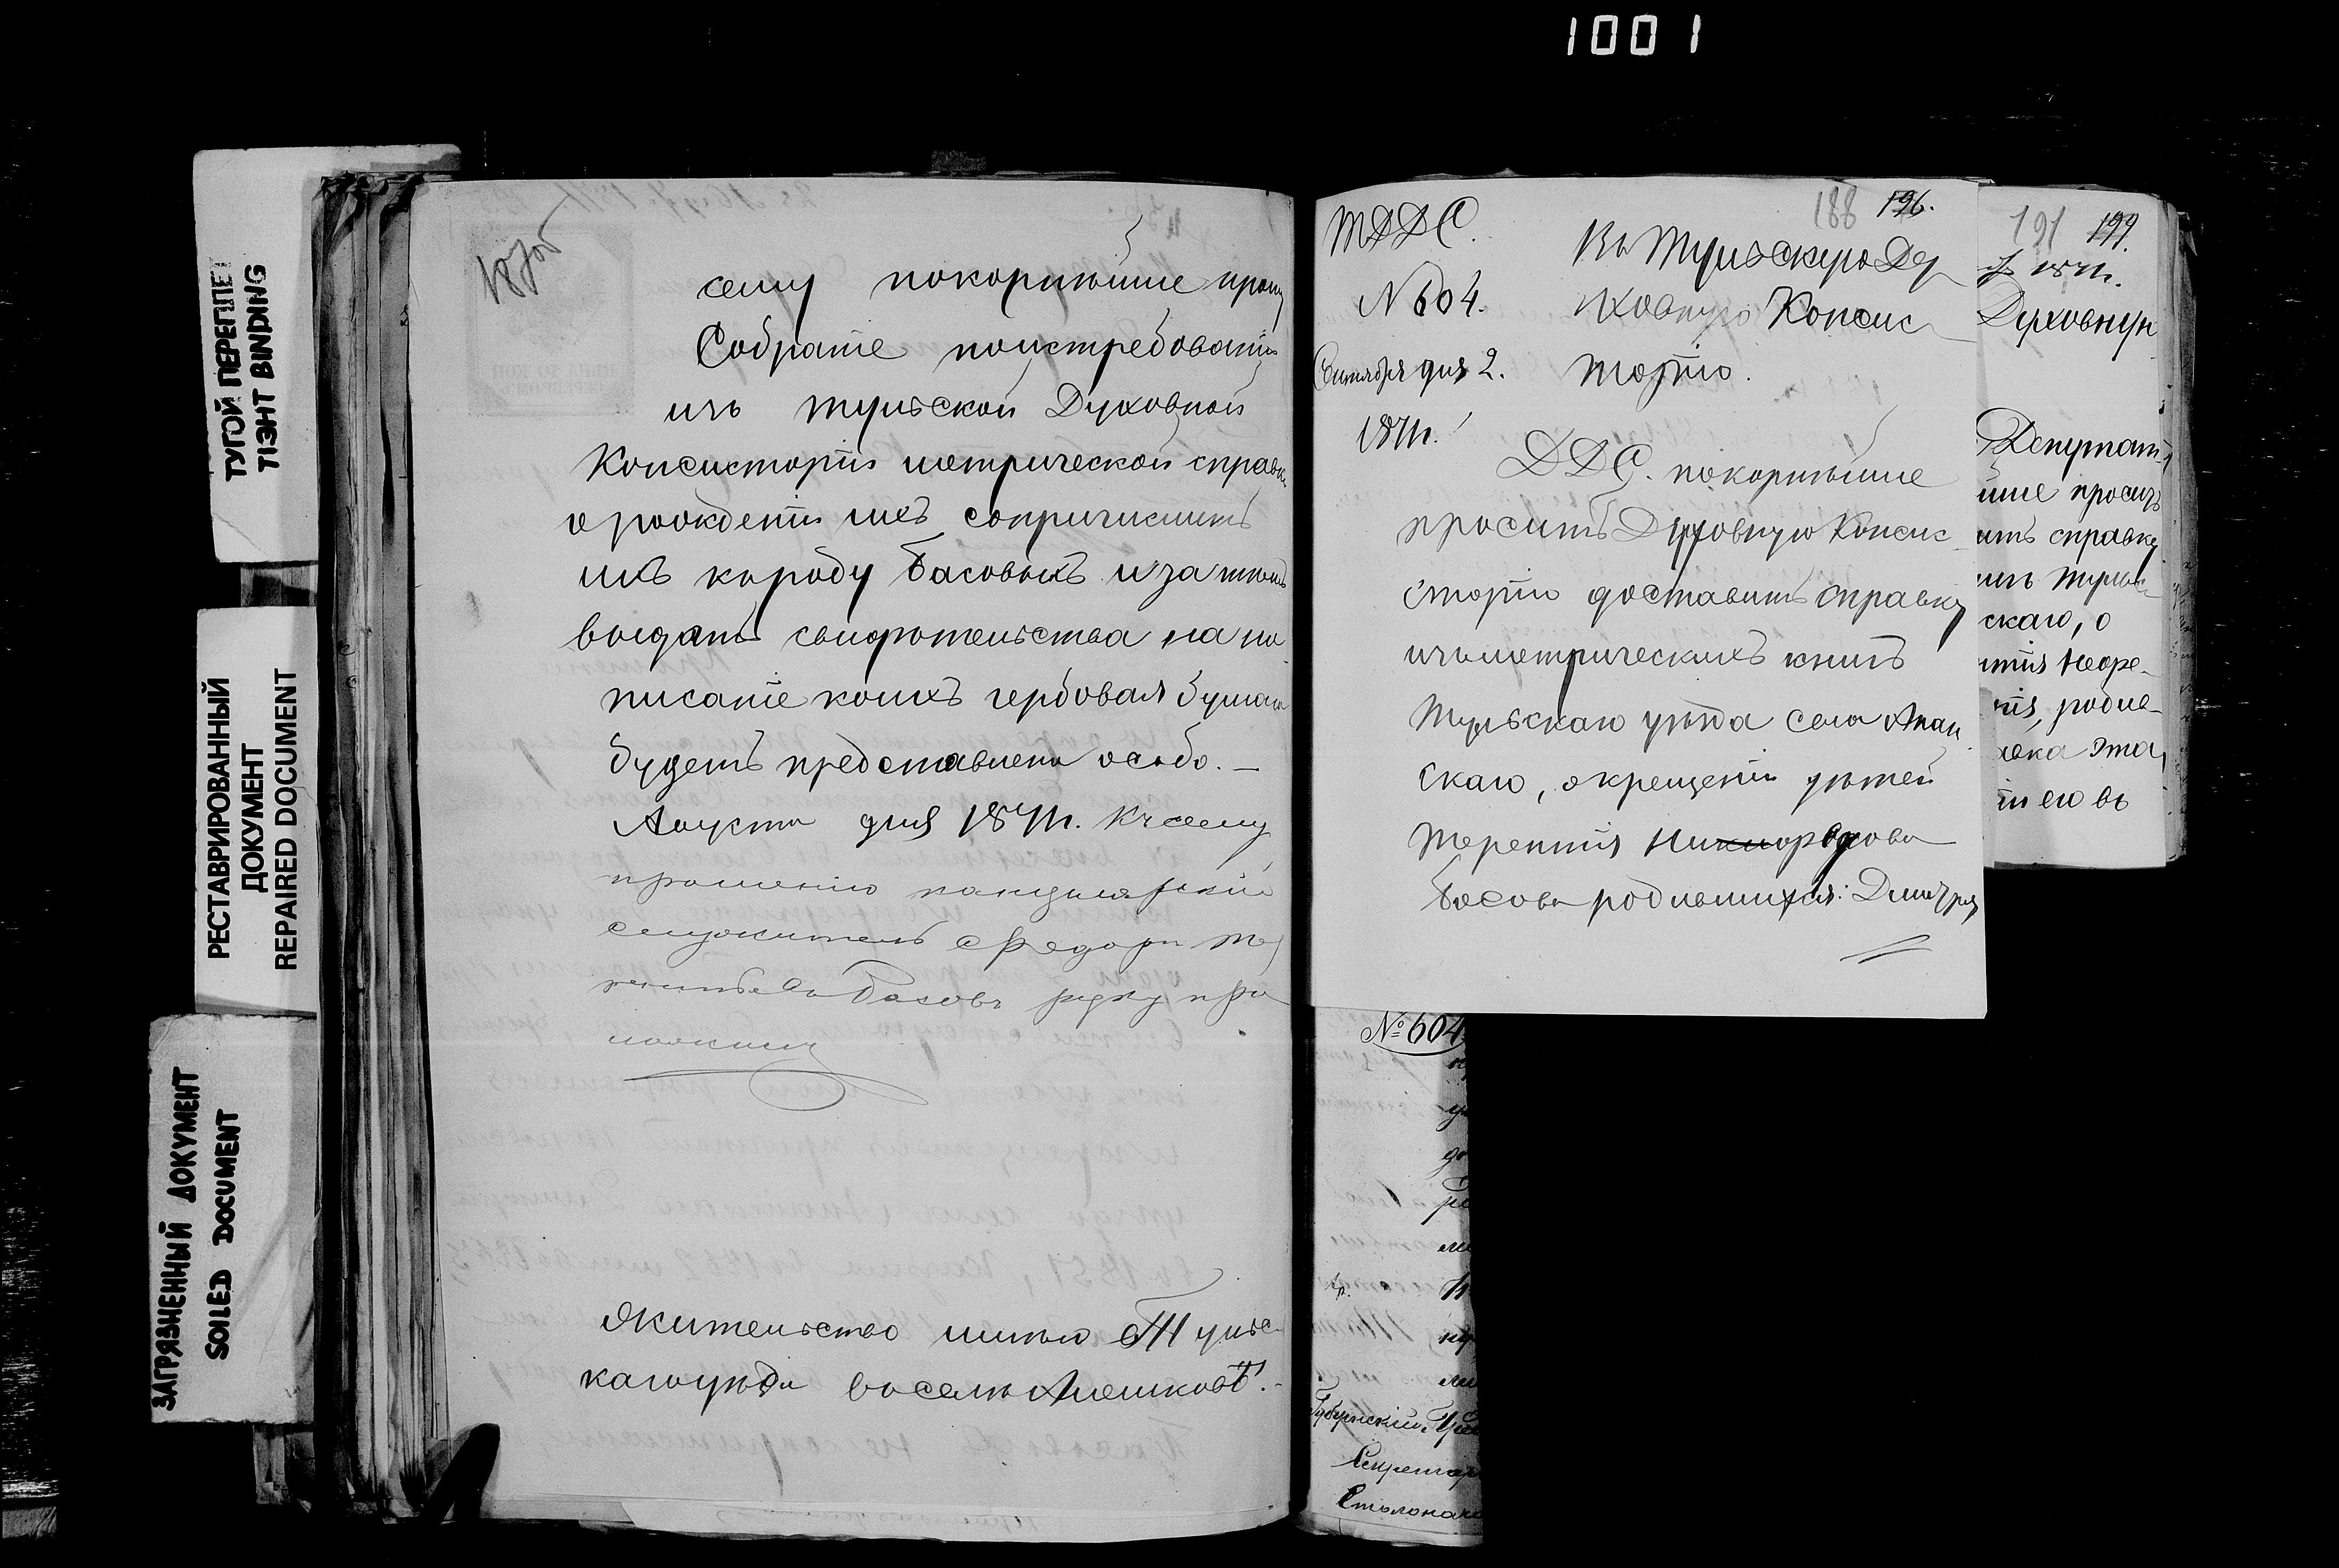 1001
ТУГОЙ ПЕРЕПЛЕТ
TIЭHT BINDING
РЕСТАВРИРОВАННЫЙ
ДОКУМЕНТ
REPAIRED DOCUMENT
ЗАГРЯЗНЕННЫЙ ДОКУМЕНТ
SOILED DOCUMENT
сему покорнѣйше прошу
Собраніе поистребовать
изъ Тульской Духовной
Консисторіи метрической справки
о рожденіи ихъ сопричислить
ихъ къ роду Басовыхъ и за тѣмъ
выдать свидѣтельства на на
писаніе коихъ гербовая бумага
будетъ представлена особо. —
Августа дня 1871 г. Къ сему
прошенію канцелярскій
служитель Федоръ Те
рентьевъ Басовъ руку при
ложилъ
Жительство имѣю Тульс
каго уѣзда въ селѣ Алешковѣ.
ТДДС.
№ 604.
Сентября дня 2.
1871 г.
188 196.
Въ Тульскую Ду
ховную Консис
торію.
ДДС. покорнѣйше
проситъ Духовную Консис
сторію доставить справку
изъ метрическихъ книгъ
Тульскаго уѣзда села
скаго, о крещеніи дѣтей
Терентія
Басова родившихся: Дмитрія
191 199.
1871 г.
Духовную
Депутат
йше проситъ
ить справку
изъ Тульс
скаго, о
нтія Ники­фо-
родив-
авка эта
ги его въ
№ 604
Губернскій
Секретарь
Столонача